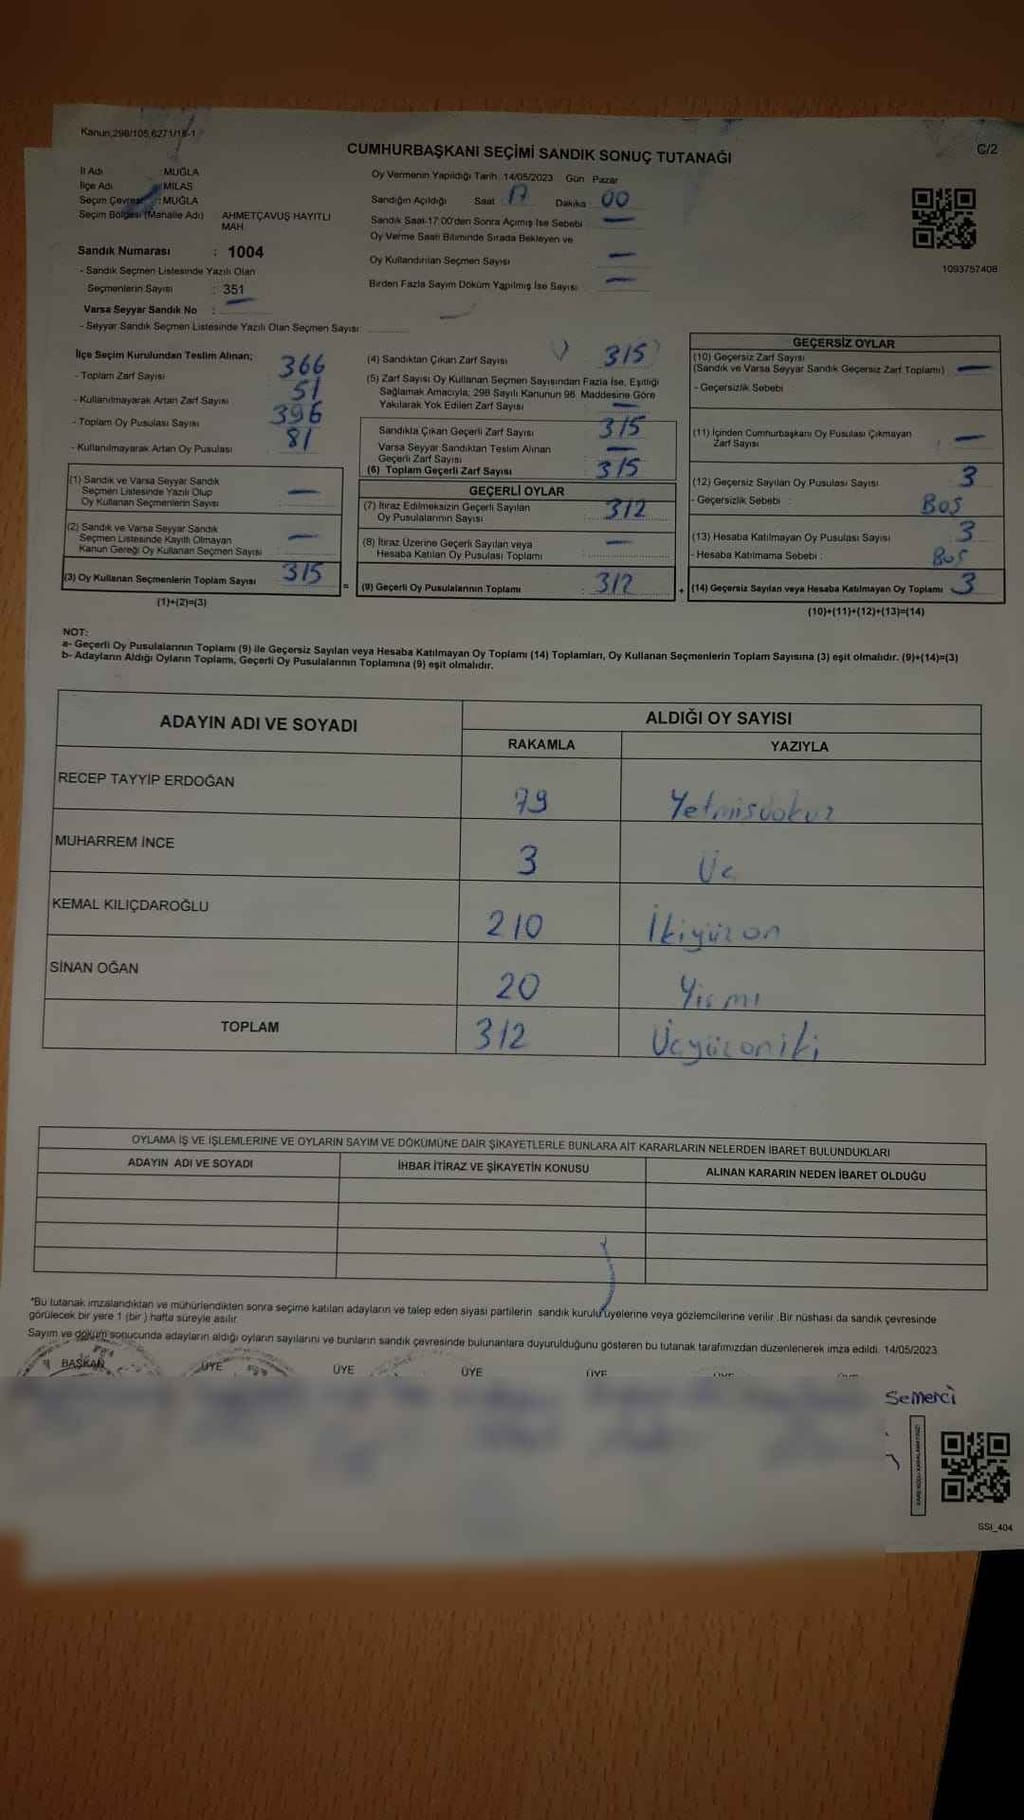 Kanun,298/105,6271/18-1
C/2
CUMHURBAŞKANI SEÇİMİ SANDIK SONUÇ TUTANAĞI
İl Adı : MUĞLA
İlçe Adı : MİLAS
Seçim Çevresi : MUĞLA
Seçim Bölgesi (Mahalle Adı) AHMETÇAVUŞ HAYITLI MAH
Sandık Numarası : 1004
- Sandık Seçmen Listesinde Yazılı Olan
Seçmenlerin Sayısı : 351
Varsa Seyyar Sandık No :
- Seyyar Sandık Seçmen Listesinde Yazılı Olan Seçmen Sayısı
Oy Vermenin Yapıldığı Tarih :14/05/2023 Gün Pazar
Sandığın Açıldığı Saat : 17 Dakika : 00
Sandık Saat 17:00'den Sonra Açımış İse Sebebi —
Oy Verme Saati Bitiminde Sırada Bekleyen ve
Oy Kullandırılan Seçmen Sayısı —
Birden Fazla Sayım Döküm Yapılmış İse Sayısı —
1093757408
İlçe Seçim Kurulundan Teslim Alınan;
- Toplam Zarf Sayısı 366
- Kullanılmayarak Artan Zarf Sayısı 51
- Toplam Oy Pusulası Sayısı 396
- Kullanılmayarak Artan Oy Pusulası 81
(1) Sandık ve Varsa Seyyar Sandık
Seçmen Listesinde Yazılı Olup
Oy Kullanan Seçmenlerin Sayısı —
(2) Sandık ve Varsa Seyyar Sandık
Seçmen Listesinde Kayıtlı Olmayan
Kanun Gereği Oy Kullanan Seçmen Sayısı —
(3) Oy Kullanan Seçmenlerin Toplam Sayısı 315
(1)+(2)=(3)
(4) Sandıktan Çıkan Zarf Sayısı 315
(5) Zarf Sayısı Oy Kullanan Seçmen Sayısından Fazla İse, Eşitliği
Sağlamak Amacıyla, 298 Sayılı Kanunun 98. Maddesine Göre
Yakılarak Yok Edilen Zarf Sayısı —
Sandıkta Çıkan Geçerli Zarf Sayısı 315
Varsa Seyyar Sandıktan Teslim Alınan
Geçerli Zarf Sayısı —
(6) Toplam Geçerli Zarf Sayısı 315
GEÇERLİ OYLAR
(7) İtiraz Edilmeksizin Geçerli Sayılan
Oy Pusulalarının Sayısı 312
(8) İtiraz Üzerine Geçerli Sayılan veya
Hesaba Katılan Oy Pusulası Toplamı —
= (9) Geçerli Oy Pusulalarının Toplamı : 312
GEÇERSİZ OYLAR
(10) Geçersiz Zarf Sayısı
(Sandık ve Varsa Seyyar Sandık Geçersiz Zarf Toplamı) —
- Geçersizlik Sebebi
(11) İçinden Cumhurbaşkanı Oy Pusulası Çıkmayan
Zarf Sayısı —
(12) Geçersiz Sayılan Oy Pusulası Sayısı 3
- Geçersizlik Sebebi : BOŞ
(13) Hesaba Katılmayan Oy Pusulası Sayısı 3
- Hesaba Katılmama Sebebi : Boş
+ (14) Geçersiz Sayılan veya Hesaba Katılmayan Oy Toplamı 3
(10)+(11)+(12)+(13)=(14)
NOT:
a- Geçerli Oy Pusulalarının Toplamı (9) ile Geçersiz Sayılan veya Hesaba Katılmayan Oy Toplamı (14) Toplamları, Oy Kullanan Seçmenlerin Toplam Sayısına (3) eşit olmalıdır. (9)+(14)=(3)
b- Adayların Aldığı Oyların Toplamı, Geçerli Oy Pusulalarının Toplamına (9) eşit olmalıdır.
ADAYIN ADI VE SOYADI ALDIĞI OY SAYISI
RAKAMLA YAZIYLA
RECEP TAYYİP ERDOĞAN 79 Yetmişdokuz
MUHARREM İNCE 3 Üç
KEMAL KILIÇDAROĞLU 210 İkiyüzon
SİNAN OĞAN 20 Yirmi
TOPLAM 312 Üçyüzoniki
OYLAMA İŞ VE İŞLEMLERİNE VE OYLARIN SAYIM VE DÖKÜMÜNE DAİR ŞİKAYETLERLE BUNLARA AİT KARARLARIN NELERDEN İBARET BULUNDUKLARI
ADAYIN ADI VE SOYADI İHBAR İTİRAZ VE ŞİKAYETİN KONUSU ALINAN KARARIN NEDEN İBARET OLDUĞU
*Bu tutanak imzalandıktan ve mühürlendikten sonra seçime katılan adayların ve talep eden siyasi partilerin sandık kurulu üyelerine veya gözlemcilerine verilir .Bir nüshası da sandık çevresinde
görülecek bir yere 1 (bir ) hafta süreyle asılır.
Sayım ve döküm sonucunda adayların aldığı oyların sayılarını ve bunların sandık çevresinde bulunanlara duyurulduğunu gösteren bu tutanak tarafımızdan düzenlenerek imza edildi. 14/05/2023
BAŞKAN ÜYE ÜYE ÜYE ÜYE
Semerci
SSI_404